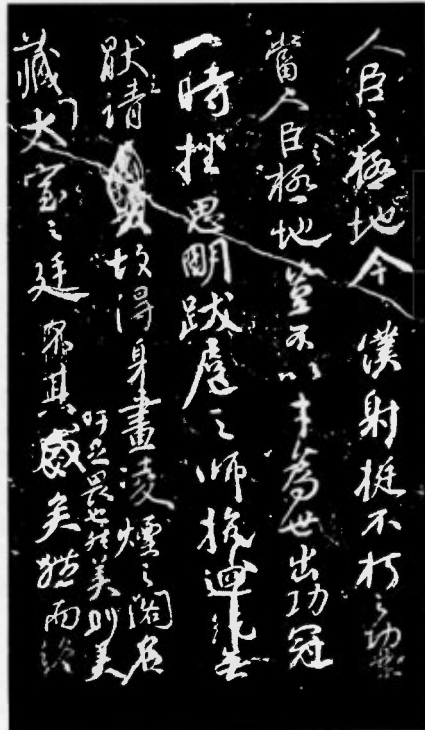 人臣之極地今僕射挺不朽之功業
當人臣極地豈不以才為世出功冠
一時挫思明跋扈之師抗迴紇無
猒之請故得身畫凌煙之閣名
藏太室之廷
吁足畏也然美則美
矣然而終